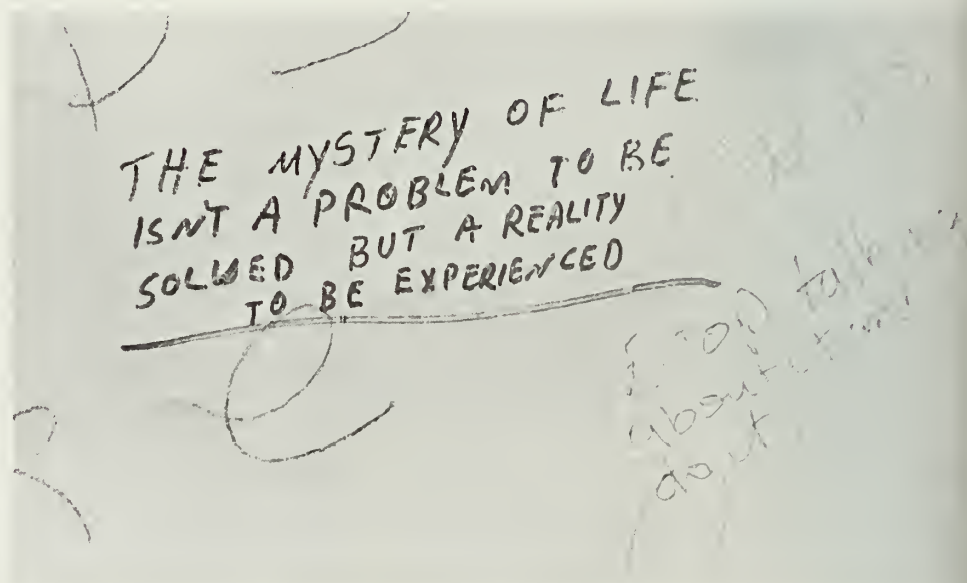 THE MYSTERY OF LIFE
ISN'T A PROBLEM TO BE
SOLVED BUT A REALITY
TO BE EXPERIENCED
about
do it